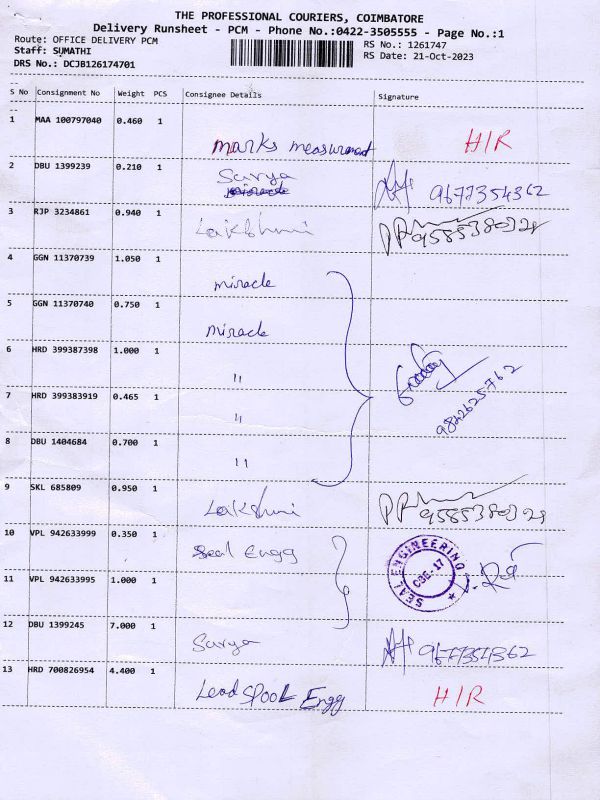 THE PROFESSIONAL COURIERS, COIMBATORE
Delivery Runsheet - PCM - Phone No.:0422-3505555 - Page No.:1
Route: OFFICE DELIVERY PCM
RS No.: 1261747
Staff: SUMATHI
RS Date: 21-Oct-2023
DRS No.: DCJB126174701
S No Consignment No Weight PCS Consignee Details Signature
1 MAA 100797040 0.460 1
marks measurment H/R
2 DBU 1399239 0.210 1 Surya
miracle 9677354362
3 RJP 3234861 0.940 1 Lakshmi 9585380329
4 GGN 11370739 1.050 1
miracle
5 GGN 11370740 0.750 1
miracle
6 HRD 399387398 1.000 1
"
9842625762
7 HRD 399383919 0.465 1
"
8 DBU 1404684 0.700 1
"
9 SKL 685809 0.950 1
Lakshmi 9585380329
10 VPL 942633999 0.350 1 Seal Engg
SEAL ENGINEERING
CBE-17
11 VPL 942633995 1.000 1
12 DBU 1399245 7.000 1
Surya 9677354362
13 HRD 700826954 4.400 1
Lead Spool Engg H/R